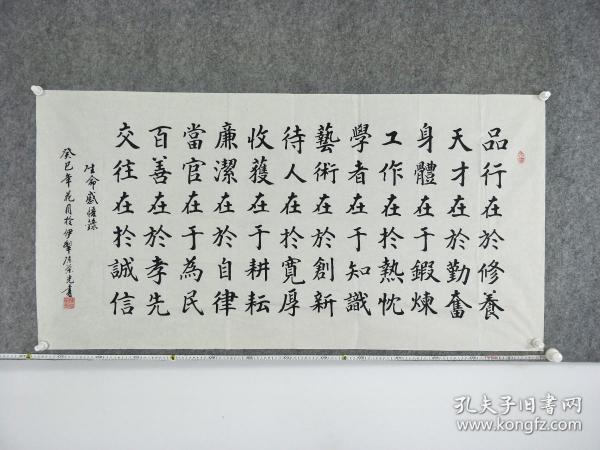 品行在於修養
天才在於勤奮
身體在于鍛煉
工作在於熱忱
學者在于知識
藝術在於創新
待人在於寬厚
收獲在于耕耘
廉潔在於自律
當官在于為民
百善在於孝先
交往在於誠信
生命感悟錄
癸巳年花月於伊犁
書
孔夫子旧书网
www.kongfz.com